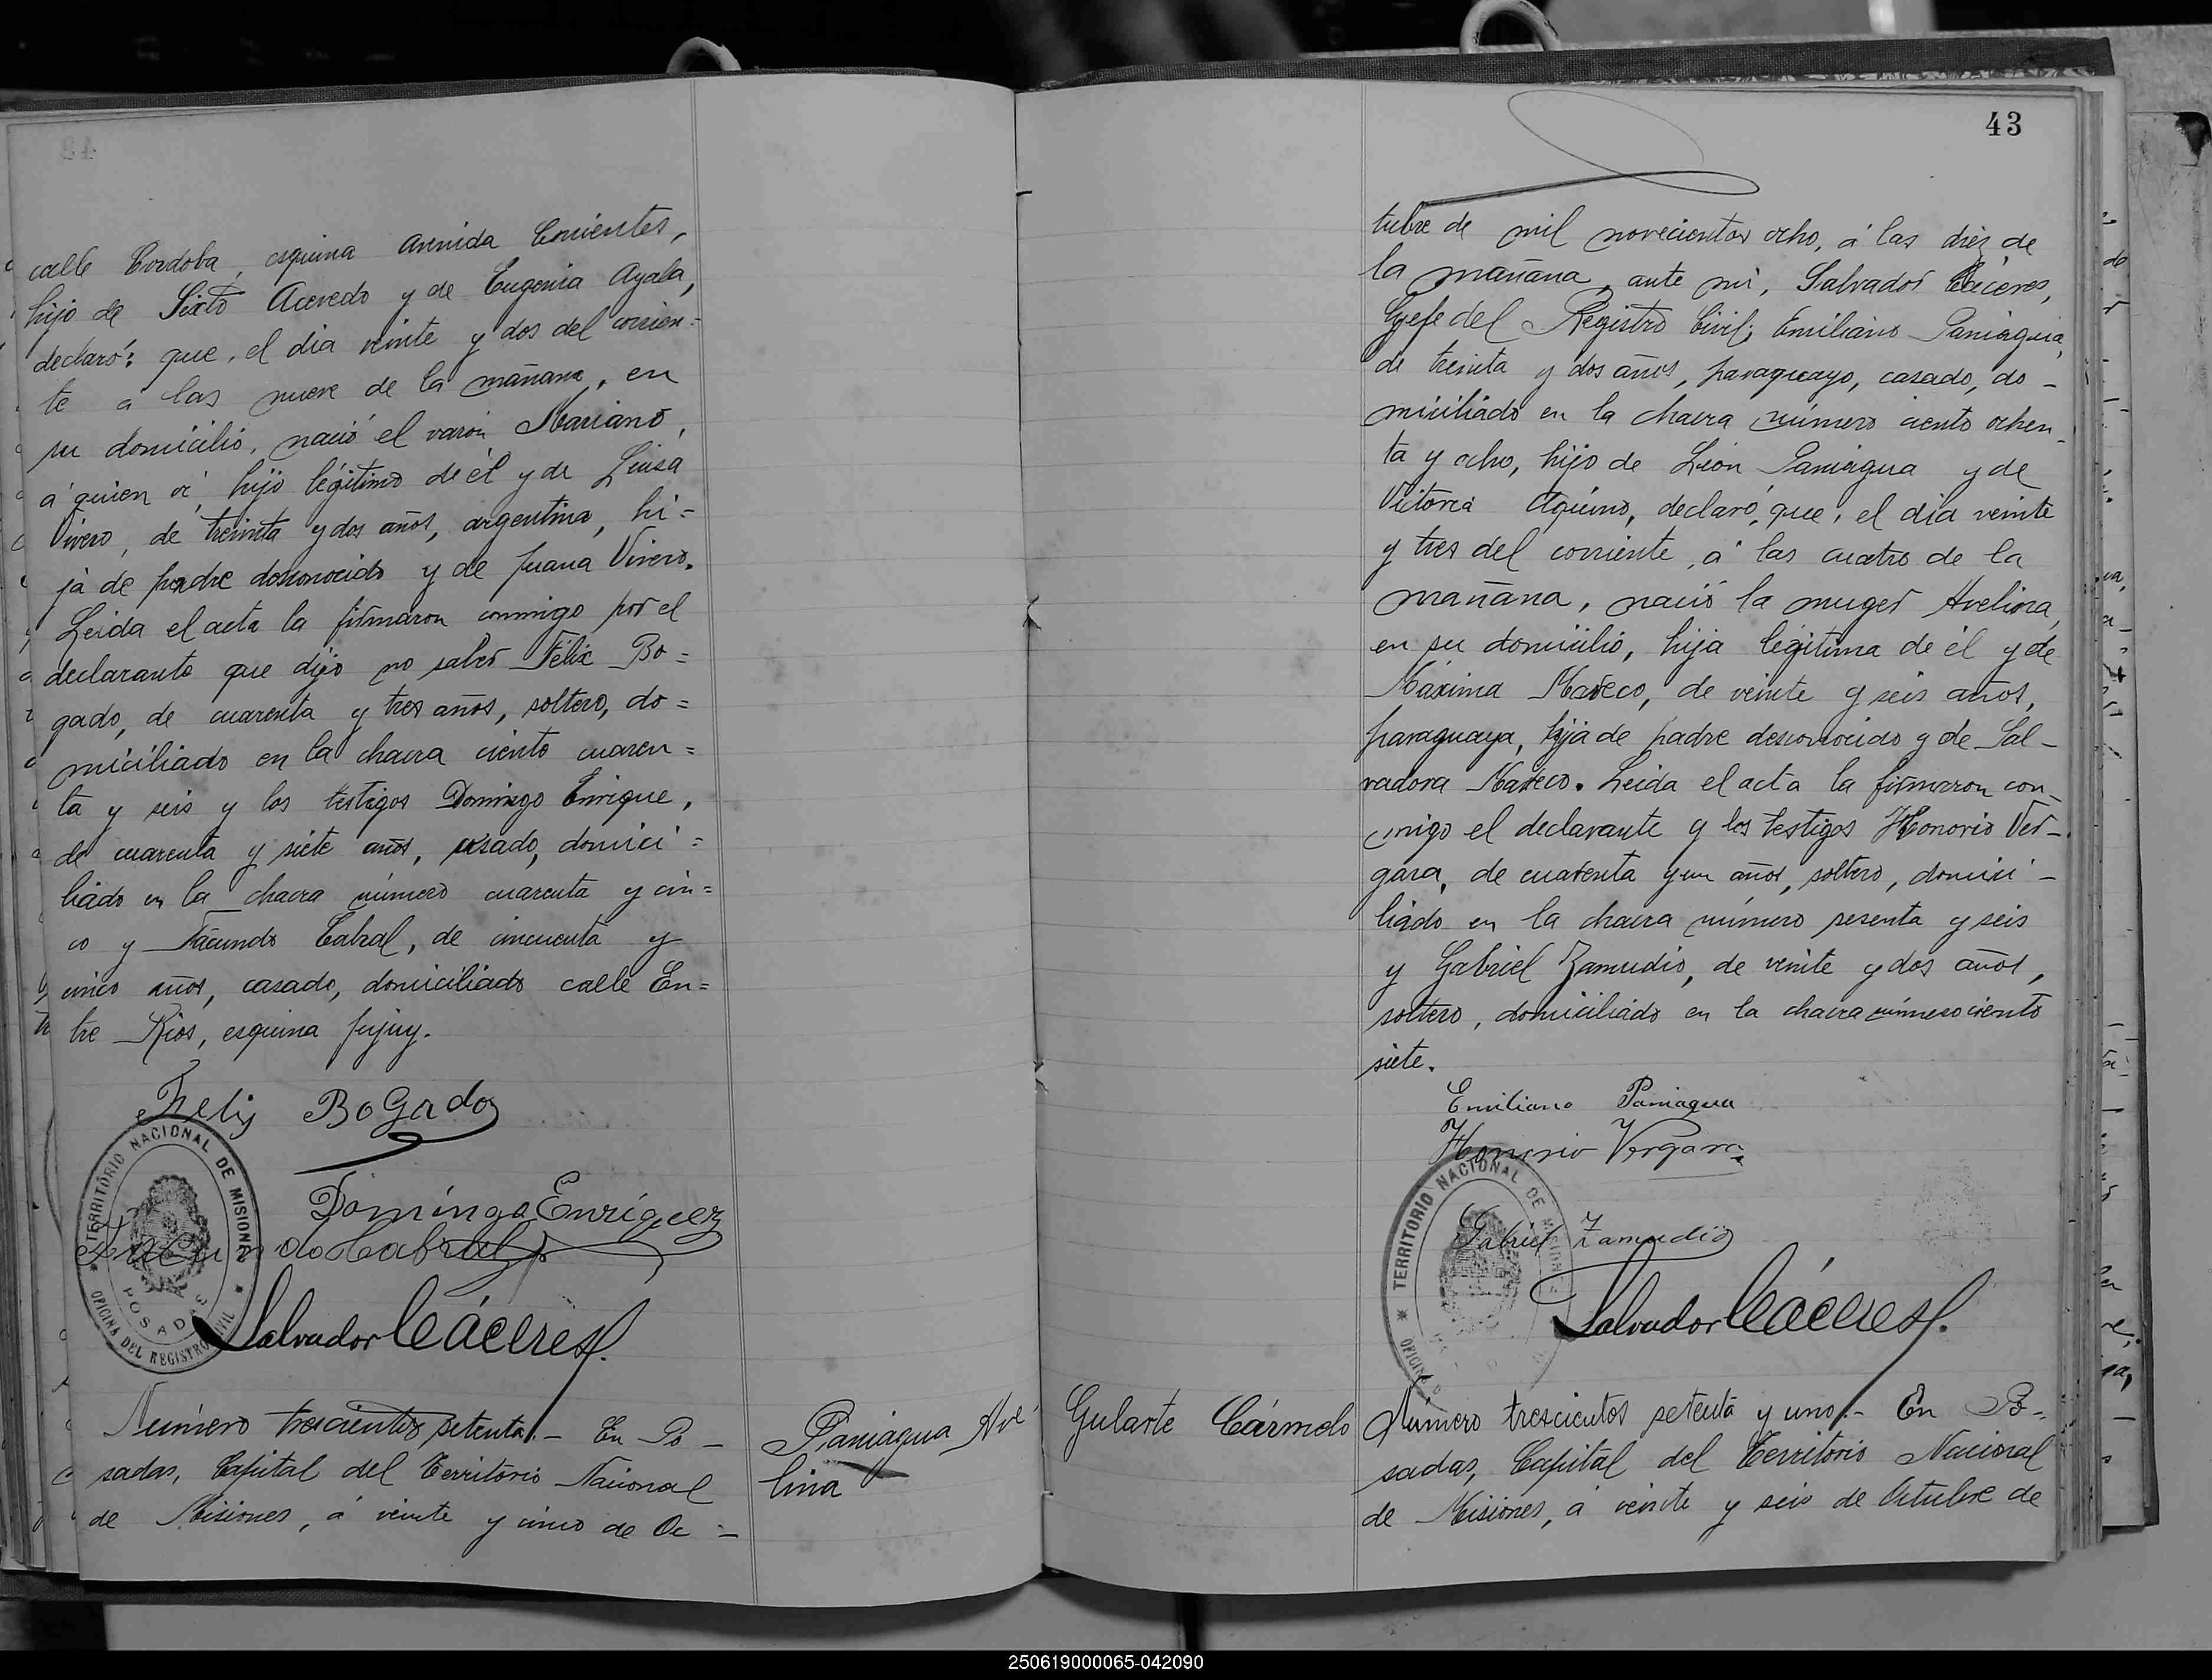 calle Cordoba, esquina Avenida Corrientes,
hijo de Sixto Acevedo y de Eugenia Ayala,
declaró: que, el dia veinte y dos del corrien=
te á las nueve de la mañana, en
su domicilio, nació el varón Mariano,
á quien ví, hijo légitimo de él y de Luisa
Vivero, de treinta y dos años, argentina, hi=
ja de padre desconocido y de Juana Vivero.
Leida el acta la firmaron conmigo por el
declarante que dijo no saber Félix Bo=
gado, de cuarenta y tres años, soltero, do=
miciliado en la chacra ciento cuaren=
ta y seis y los testigos Domingo Enrique,
de cuarenta y siete años, casado, domici=
liado en la chacra número cuarenta y cin=
co y Facundo Cabral, de cincuenta y
cinco años, casado, domiciliado calle En=
tre Rios, esquina Jujuy.
Felis Bogado
Domingo Enriquez
Facundo Cabral
TERRITORIO NACIONAL DE MISIONES
POSADAS
OFICINA DEL REGISTRO CIVIL
Salvador Cáceres
Número trescientos setenta.- En Po-
sadas, Capital del Territorio Nacional
de Misiones, á veinte y cinco de Oc=
Paniagua Ave
lina
43
tubre de mil novecientos ocho, á las diez de
la mañana, ante mi, Salvador Cáceres,
Gefe del Registro Civil; Emiliano Paniagua,
de treinta y dos años, paraguayo, casado, do-
miciliado en la chacra número ciento ochen-
ta y ocho, hijo de León Paniagua y de
Victoria Aquino, declaró, que, el dia veinte
y tres del corriente, á las cuatro de la
mañana, nació la muger Avelina,
en su domicilio, hija légitima de él y de
Máxima Mareco, de veinte y seis años,
paraguaya, hija de padre desconocido y de Sal-
vadora Mareco. Leida el acta la firmaron con-
migo el declarante y los testigos Honorio Ver-
gara, de cuarenta y un años, soltero, domici-
liado en la chacra número sesenta y seis
y Gabriel Zamudio, de veinte y dos años,
soltero, domiciliado en la chacra número ciento
siete.
Emiliano Paniagua
Honorio Vergara
TERRITORIO NACIONAL DE MISIONES
Gabriel Zamudio
Salvador Cáceres
Gularte Cármelo
Número trescientos setenta y uno.- En Po-
sadas, Capital del Territorio Nacional
de Misiones, á veinte y seis de Octubre de
250619000065-042090